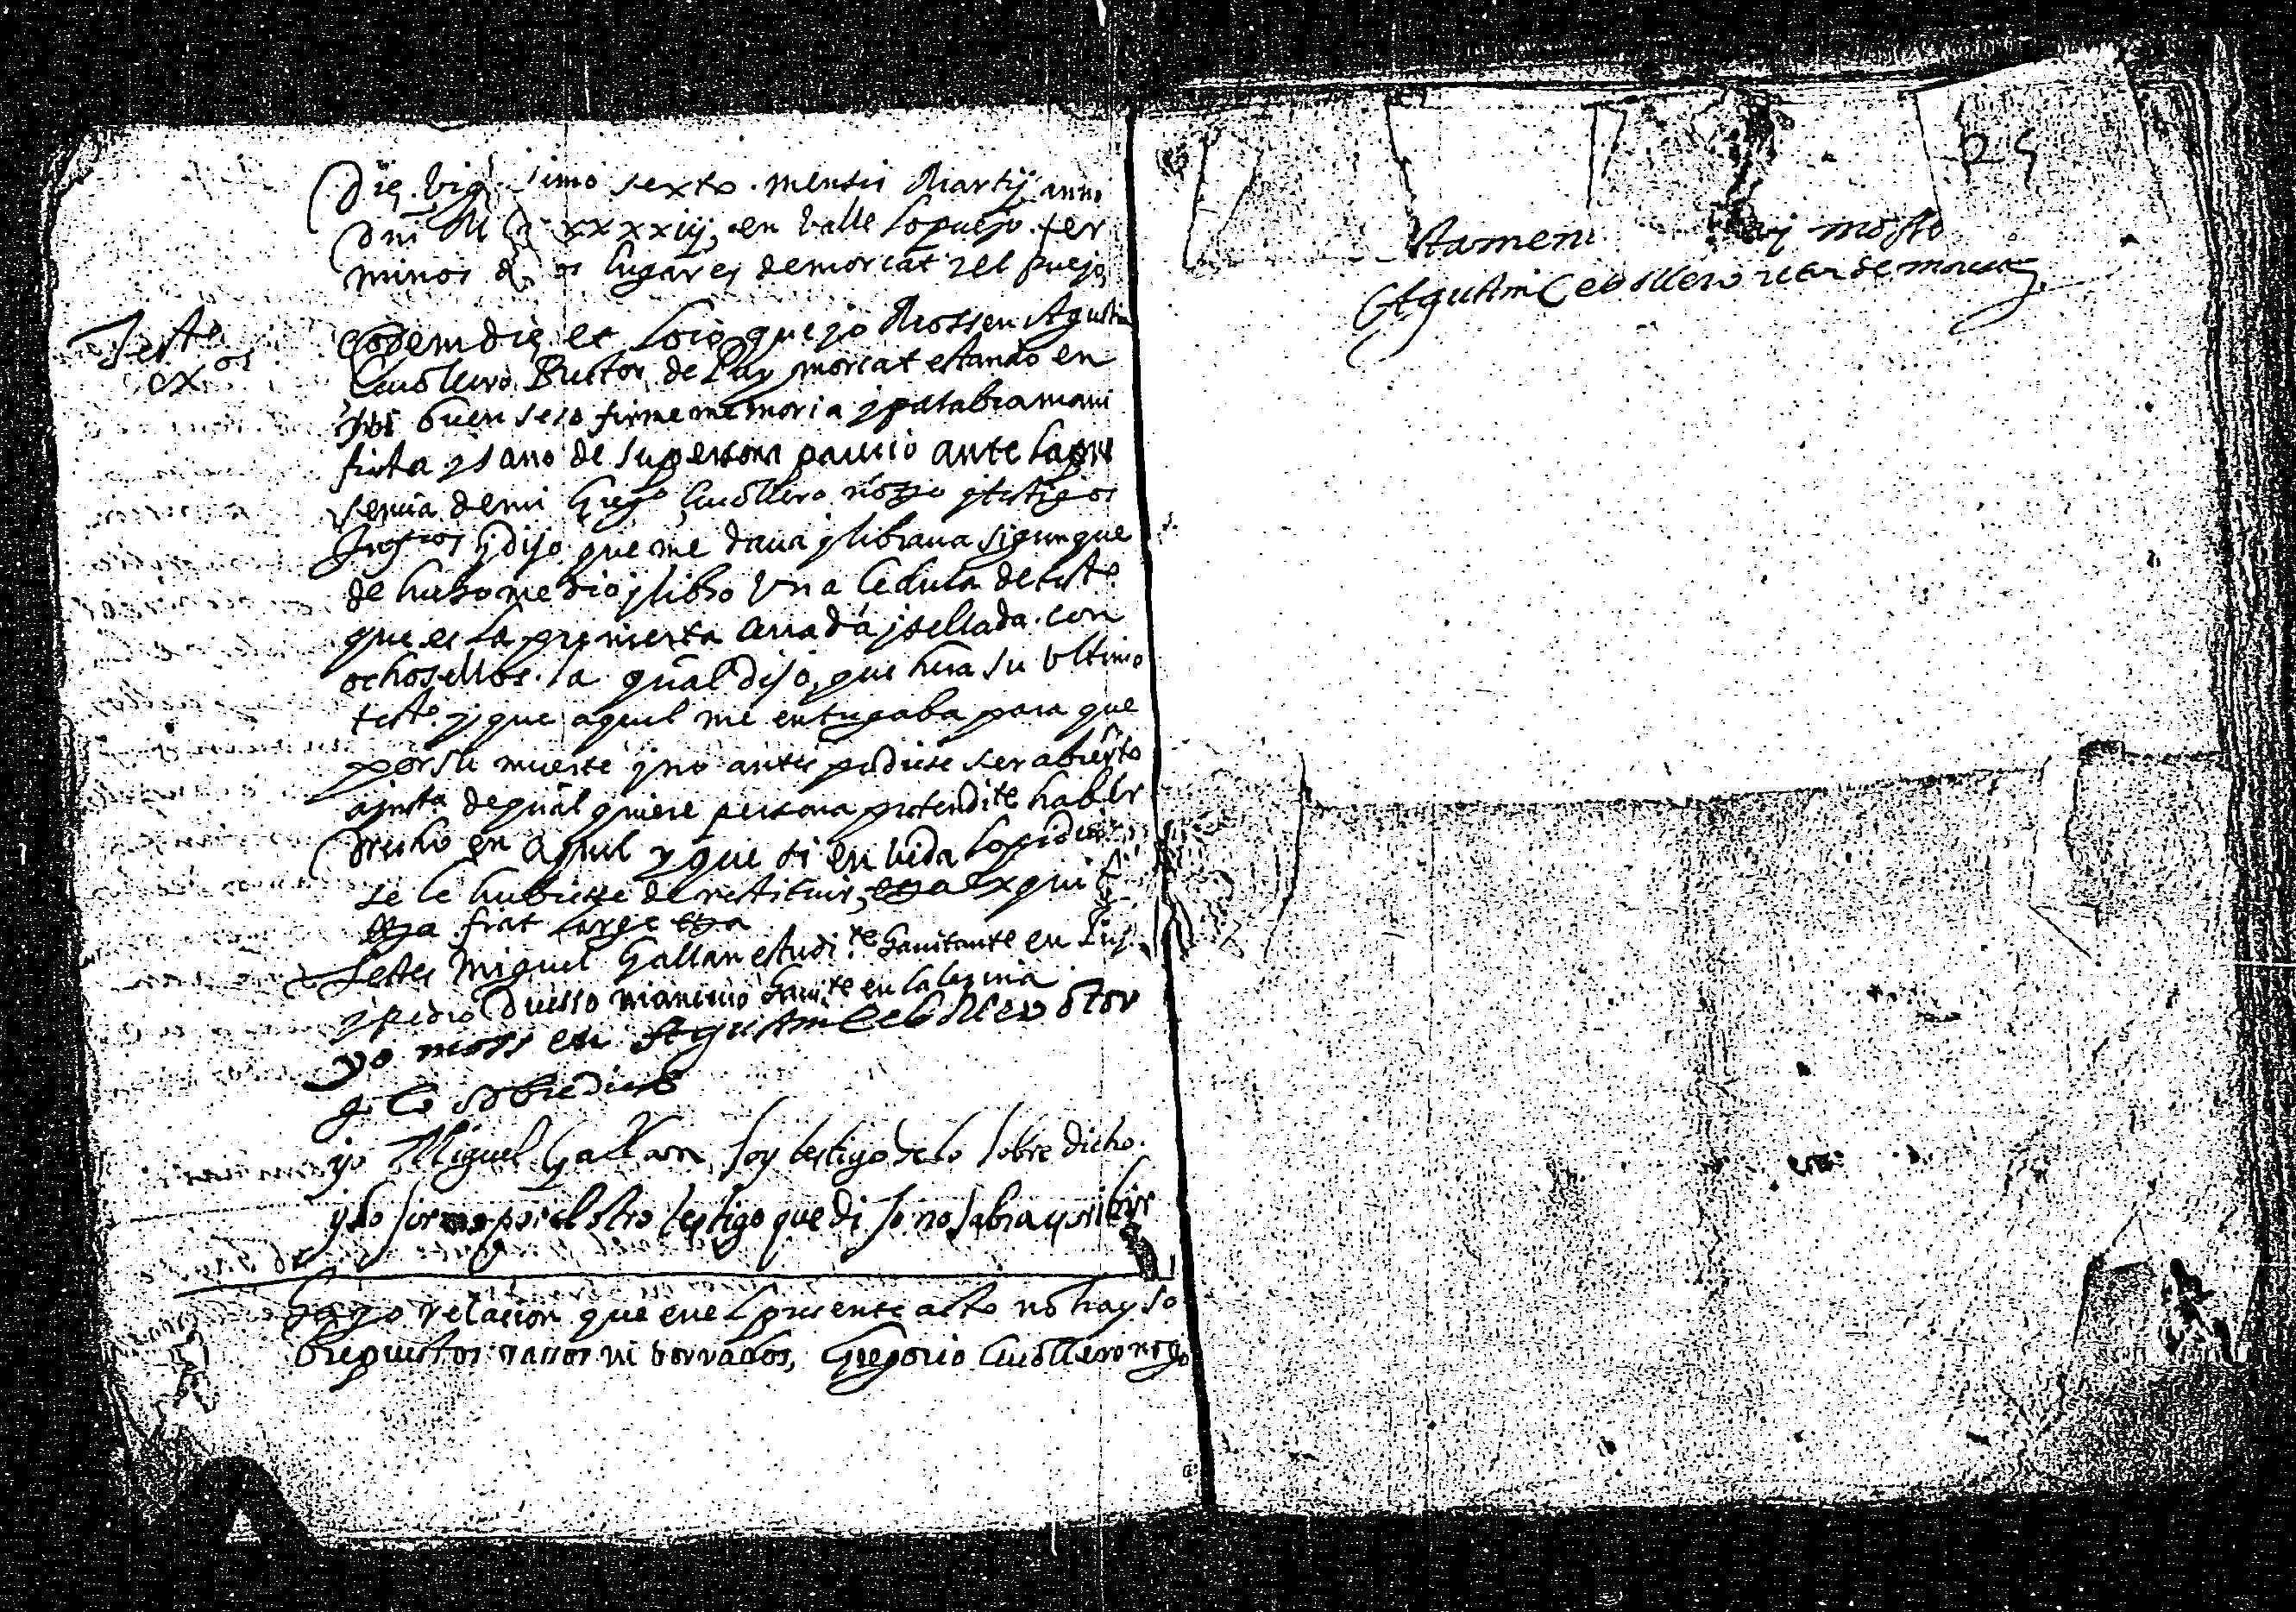 Die vig simo sexto mensis Martij anno
Dni M xxxxiij, en valle lo puejo ter
minos d os lugares de morcat y el puejo
Test.to ex.os
Eodem die et loco que yo Mossen Agustin
Cauollero Rector de morcat estando en
mi buen seso firme memoria y palabra mani
fiesta y sano de su persona parecio ante la pre
sencia de mi Greg.o Cauollero nott.o y testigos
infros y dijo que me daua y libraua sigun que
de hecho me dio y libro vna cedula de test.o
que es la presente cerrada y sellada con
ocho sellos la qual dijo que hera su vltimo
test.o y que aquel me entregaba para que
por su muerte y no antes pudiese ser abierto
a insta de qual quiere persona pretendite haber
drecho en aquel y que si en vida lo pidiese
se le hubiesse de restituir, etta ex qui
etta fiat large etta
Testes Miguel Gallan estudi.te hauitante en
y pedro Duesso mancebo hauit.te en la
yo moss en Agustin Cebollero otor
go lo sobredicho
yo Miguel Gallan soy testigo de lo sobre dicho
y lo firmo por el otro testigo que dijo no sabia escribir
Hago relacion que en el presente acto no hay so
brepuestos rassos ni borrados, Gregorio Cauollero nott.o
25
stamen mosse
Agustin Cebollero rector de morcat